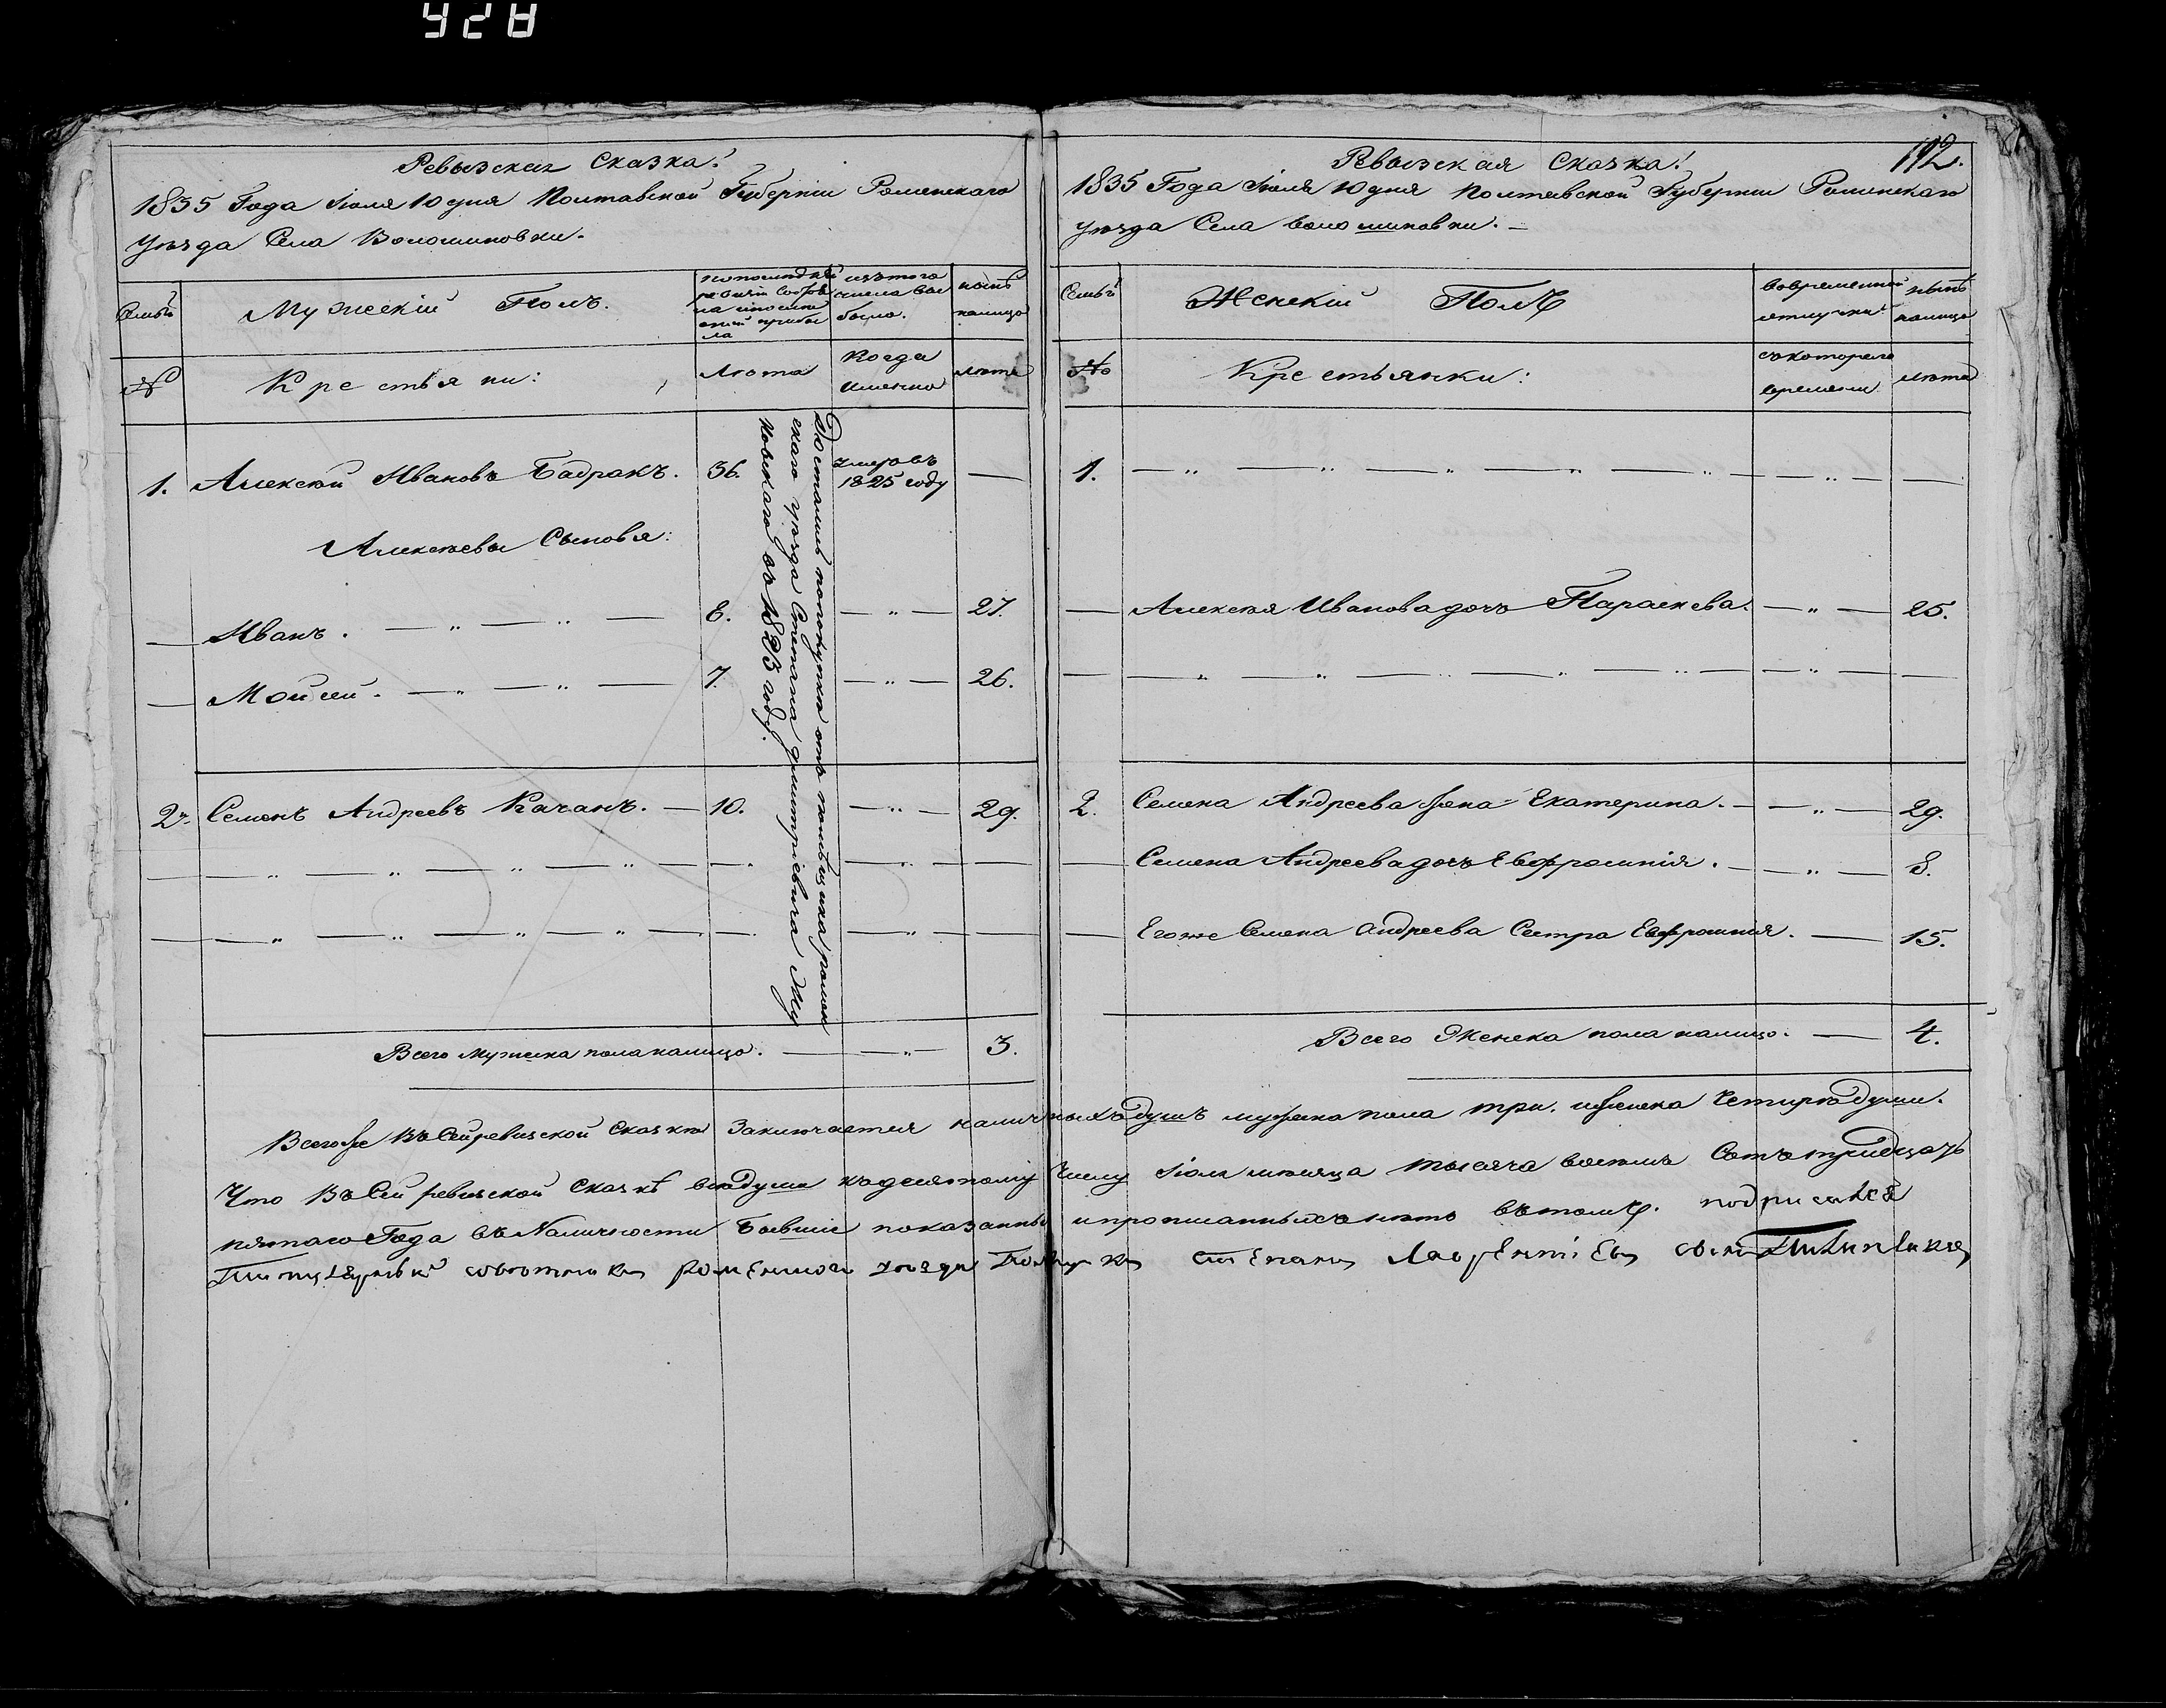 428
Ревызская Сказка!
1835 Года Іюля 10 дня Полтавской Губерніи Роменскаго
уезда Села Волошиновки.
Семьи
Мужескій Полъ.
попоследней
ревизіи состоя
ло и после
оной прибы
ло
изътого
числа вы
было.
ныне
налицо
№
Крестьяни:
Лета
Когда
именно
лета
1. Алексей Ивановъ Бадракъ. 36. умеръ въ 1825 году —
Алексеевы Сыновья:
— Иванъ. — „ — „ — 8. — „ — 27.
— Мойсей. — „ — „ — 7. — „ — 26.
2. Семенъ Андреевъ Качанъ. — 10. — „ — 29.
Досталис попокупки отъ помѣщика ромен
скаго уезда Степана Дмитріевича Жу
ковскаго въ 1823 году.
Всего мужеска пола налицо. — „ — 3.
112.
Ревызская Сказка!
1835 Года Іюля 10 дня Полтавской Губерніи Роменскаго
уезда Села Волошиновки. —
Семьи
Женскій Полъ
вовременной
отлучки
ныне
налицо
№
Крестьянки:
съкотораго
времени
лета
1. — „ — „ — „ — „ — „ — — „ — —
— Алексея Иванова дочь Параскева. — „ — 25.
2. Семена Андреева жена Екатерина. — — „ — 29.
— Семена Андреева дочь Евфросинія. — „ — 8.
— Егоже Семена Андреева Сестра Евфросинія. — 15.
Всего Женска пола налицо. — 4.
Всегоже въСейревизской Сказки Заключается наличныхъдушъ мужеска пола три. иженска Четирѣ души.
Что въСей ревизской Сказкѣ вседуши къдесятому Числу Іюля месяца тысяча восемъ Сотъ тридцать
пятаго Года въНаличности Бывшіе показанны ипрописанныхъ нетъ втомъ. подписался
Титулярный советникъ роменскаго уезда Степанъ Лаврентіевъ сынъ